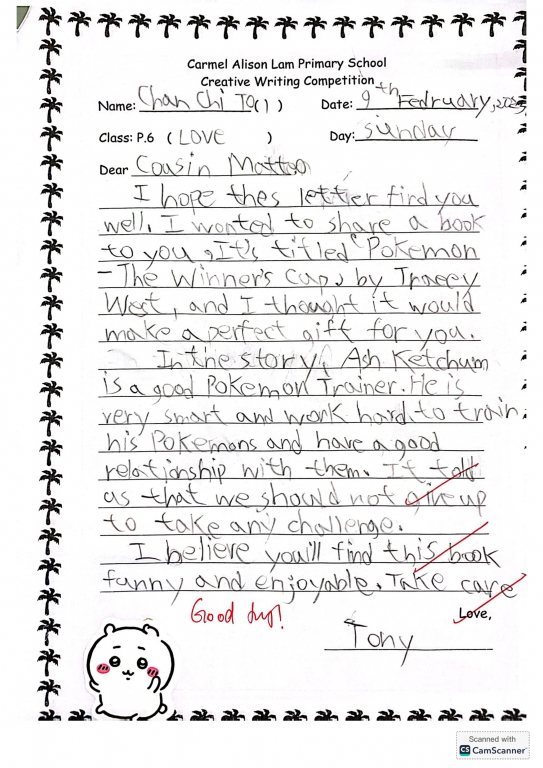 Carmel Alison Lam Primary School
Creative Writing Competition
Name: Chan Chi To(1) Date: 9th February, 2025
Class: P.6 (LOVE) Day: Sunday
Dear Cousin
I hope thes lettter find you
well. I wanted to share a book
to you, It's titled "Pokemon
- The Winner's Cup, by Tracey
West, and I thought it would
make a perfect gift for you.
In the story, Ash Ketchum
is a good Pokemon Trainer. He is
very smart and work hard to train
his Pokemons and have a good
relationship with them. It told
us that we should not give up
to take any challenge.
I believe you'll find this book
funny and enjoyable. Take care
Good try!
Love,
Tony
Scanned with
CS CamScanner